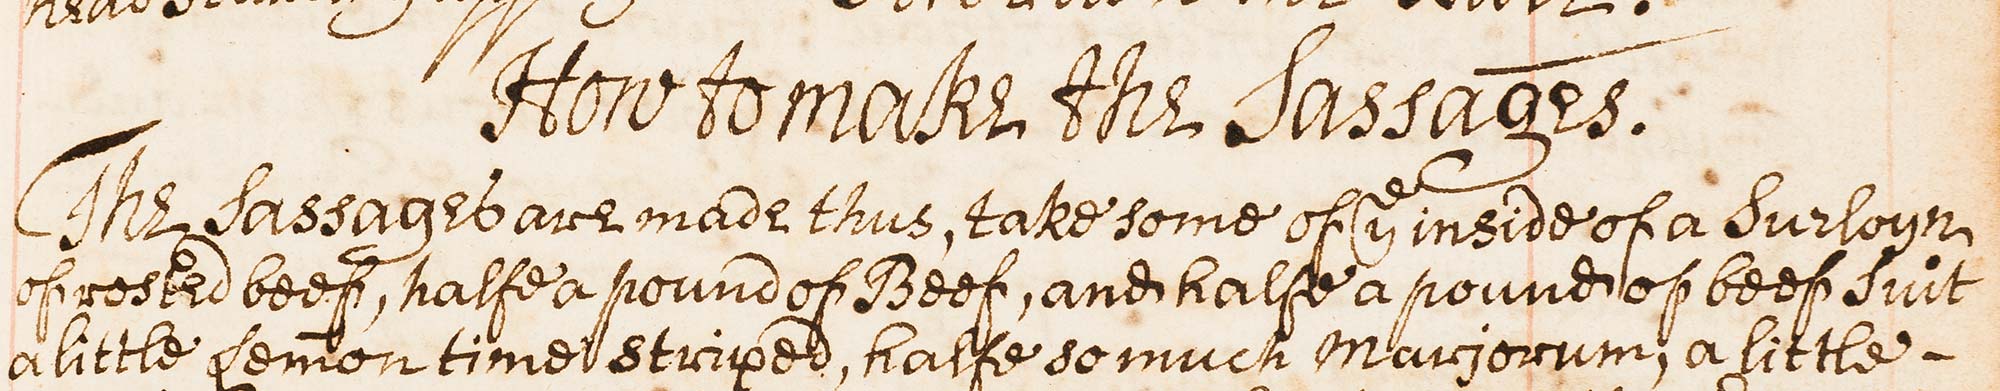 How to make the Sassages.
The Sassages are made thus, take some of yᵉ inside of a Surloyn
of rosted beef, halfe a pound of Beef, and halfe a pound of beef Suit
a little Lemon time striped, halfe so much Marjorum, a little -